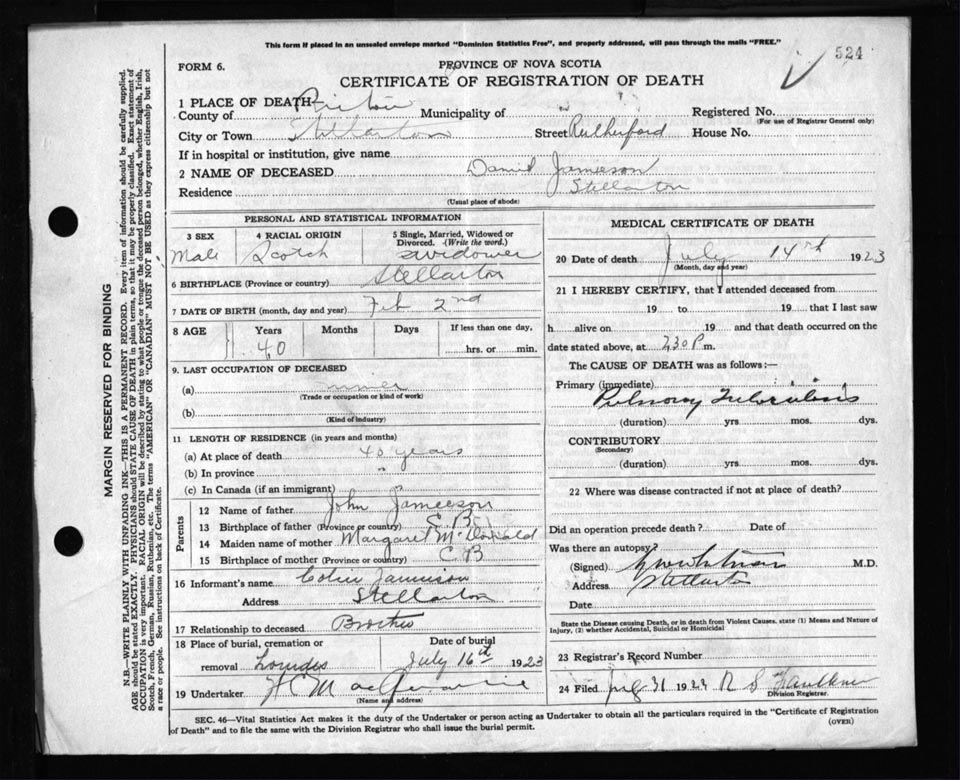 This form if placed in an unsealed envelope marked "Dominion Statistics Free", and properly addressed, will pass through the mails "FREE."
524
FORM 6.
PROVINCE OF NOVA SCOTIA
CERTIFICATE OF REGISTRATION OF DEATH
1 PLACE OF DEATH—
County of Pictou Municipality of Registered No.
(For use of Registrar General only)
City or Town Stellarton Street Rutherford House No.
If in hospital or institution, give name
2 NAME OF DECEASED Daniel Jamieson
Residence Stellarton
(Usual place of abode)
PERSONAL AND STATISTICAL INFORMATION
3 SEX 4 RACIAL ORIGIN 5 Single, Married, Widowed or Divorced. (Write the word.)
Male Scotch widower
6 BIRTHPLACE (Province or country) Stellarton
7 DATE OF BIRTH (month, day and year) Feb 2nd
8 AGE Years Months Days If less than one day,
40 hrs. or min.
9. LAST OCCUPATION OF DECEASED
(a) miner
(Trade or occupation or kind of work)
(b)
(Kind of industry)
11 LENGTH OF RESIDENCE (in years and months)
(a) At place of death 40 years
(b) In province "
(c) In Canada (if an immigrant)
Parents
12 Name of father John Jameeson
13 Birthplace of father (Province or country) C.B
14 Maiden name of mother Margaret McDonald
15 Birthplace of mother (Province or country) C.B
16 Informant's name Jamieson
Address Stellarton
17 Relationship to deceased Brother
18 Place of burial, cremation or Date of burial
removal Lourdes July 16th 1923
19 Undertaker
(Name and address)
MEDICAL CERTIFICATE OF DEATH
20 Date of death July 14th 1923
(Month, day and year)
21 I HEREBY CERTIFY, that I attended deceased from
19 to 19 that I last saw
h alive on 19 and that death occurred on the
date stated above, at 7.30 P m.
The CAUSE OF DEATH was as follows:—
Primary (immediate)
Pulmonary Tuberculosis
(duration) yrs mos. dys.
CONTRIBUTORY
(Secondary)
(duration) yrs mos. dys.
22 Where was disease contracted if not at place of death?
Did an operation precede death? Date of
Was there an autopsy?
(Signed) M.D.
Address Stellarton
Date
State the Disease causing Death, or in death from Violent Causes, state (1) Means and Nature of
Injury, (2) whether Accidental, Suicidal or Homicidal
23 Registrar's Record Number
24 Filed 31 1923 R S Faulkner
Division Registrar.
SEC. 46—Vital Statistics Act makes it the duty of the Undertaker or person acting as Undertaker to obtain all the particulars required in the "Certificate of Registration
of Death" and to file the same with the Division Registrar who shall issue the burial permit.
(OVER)
MARGIN RESERVED FOR BINDING
N.B.—WRITE PLAINLY WITH UNFADING INK—THIS IS A PERMANENT RECORD. Every item of information should be carefully supplied.
AGE should be stated EXACTLY. PHYSICIANS should STATE CAUSE OF DEATH in plain terms, so that it may be properly classified. Exact statement of
OCCUPATION is very important. RACIAL ORIGIN will be described by stating to what people or tongue the deceased person belonged, whether English, Irish,
Scotch, French, German, Russian, Ruthenian, etc. The terms "AMERICAN" OR "CANADIAN" MUST NOT BE USED as they express citizenship but not
a race or people. See instructions on back of Certificate.